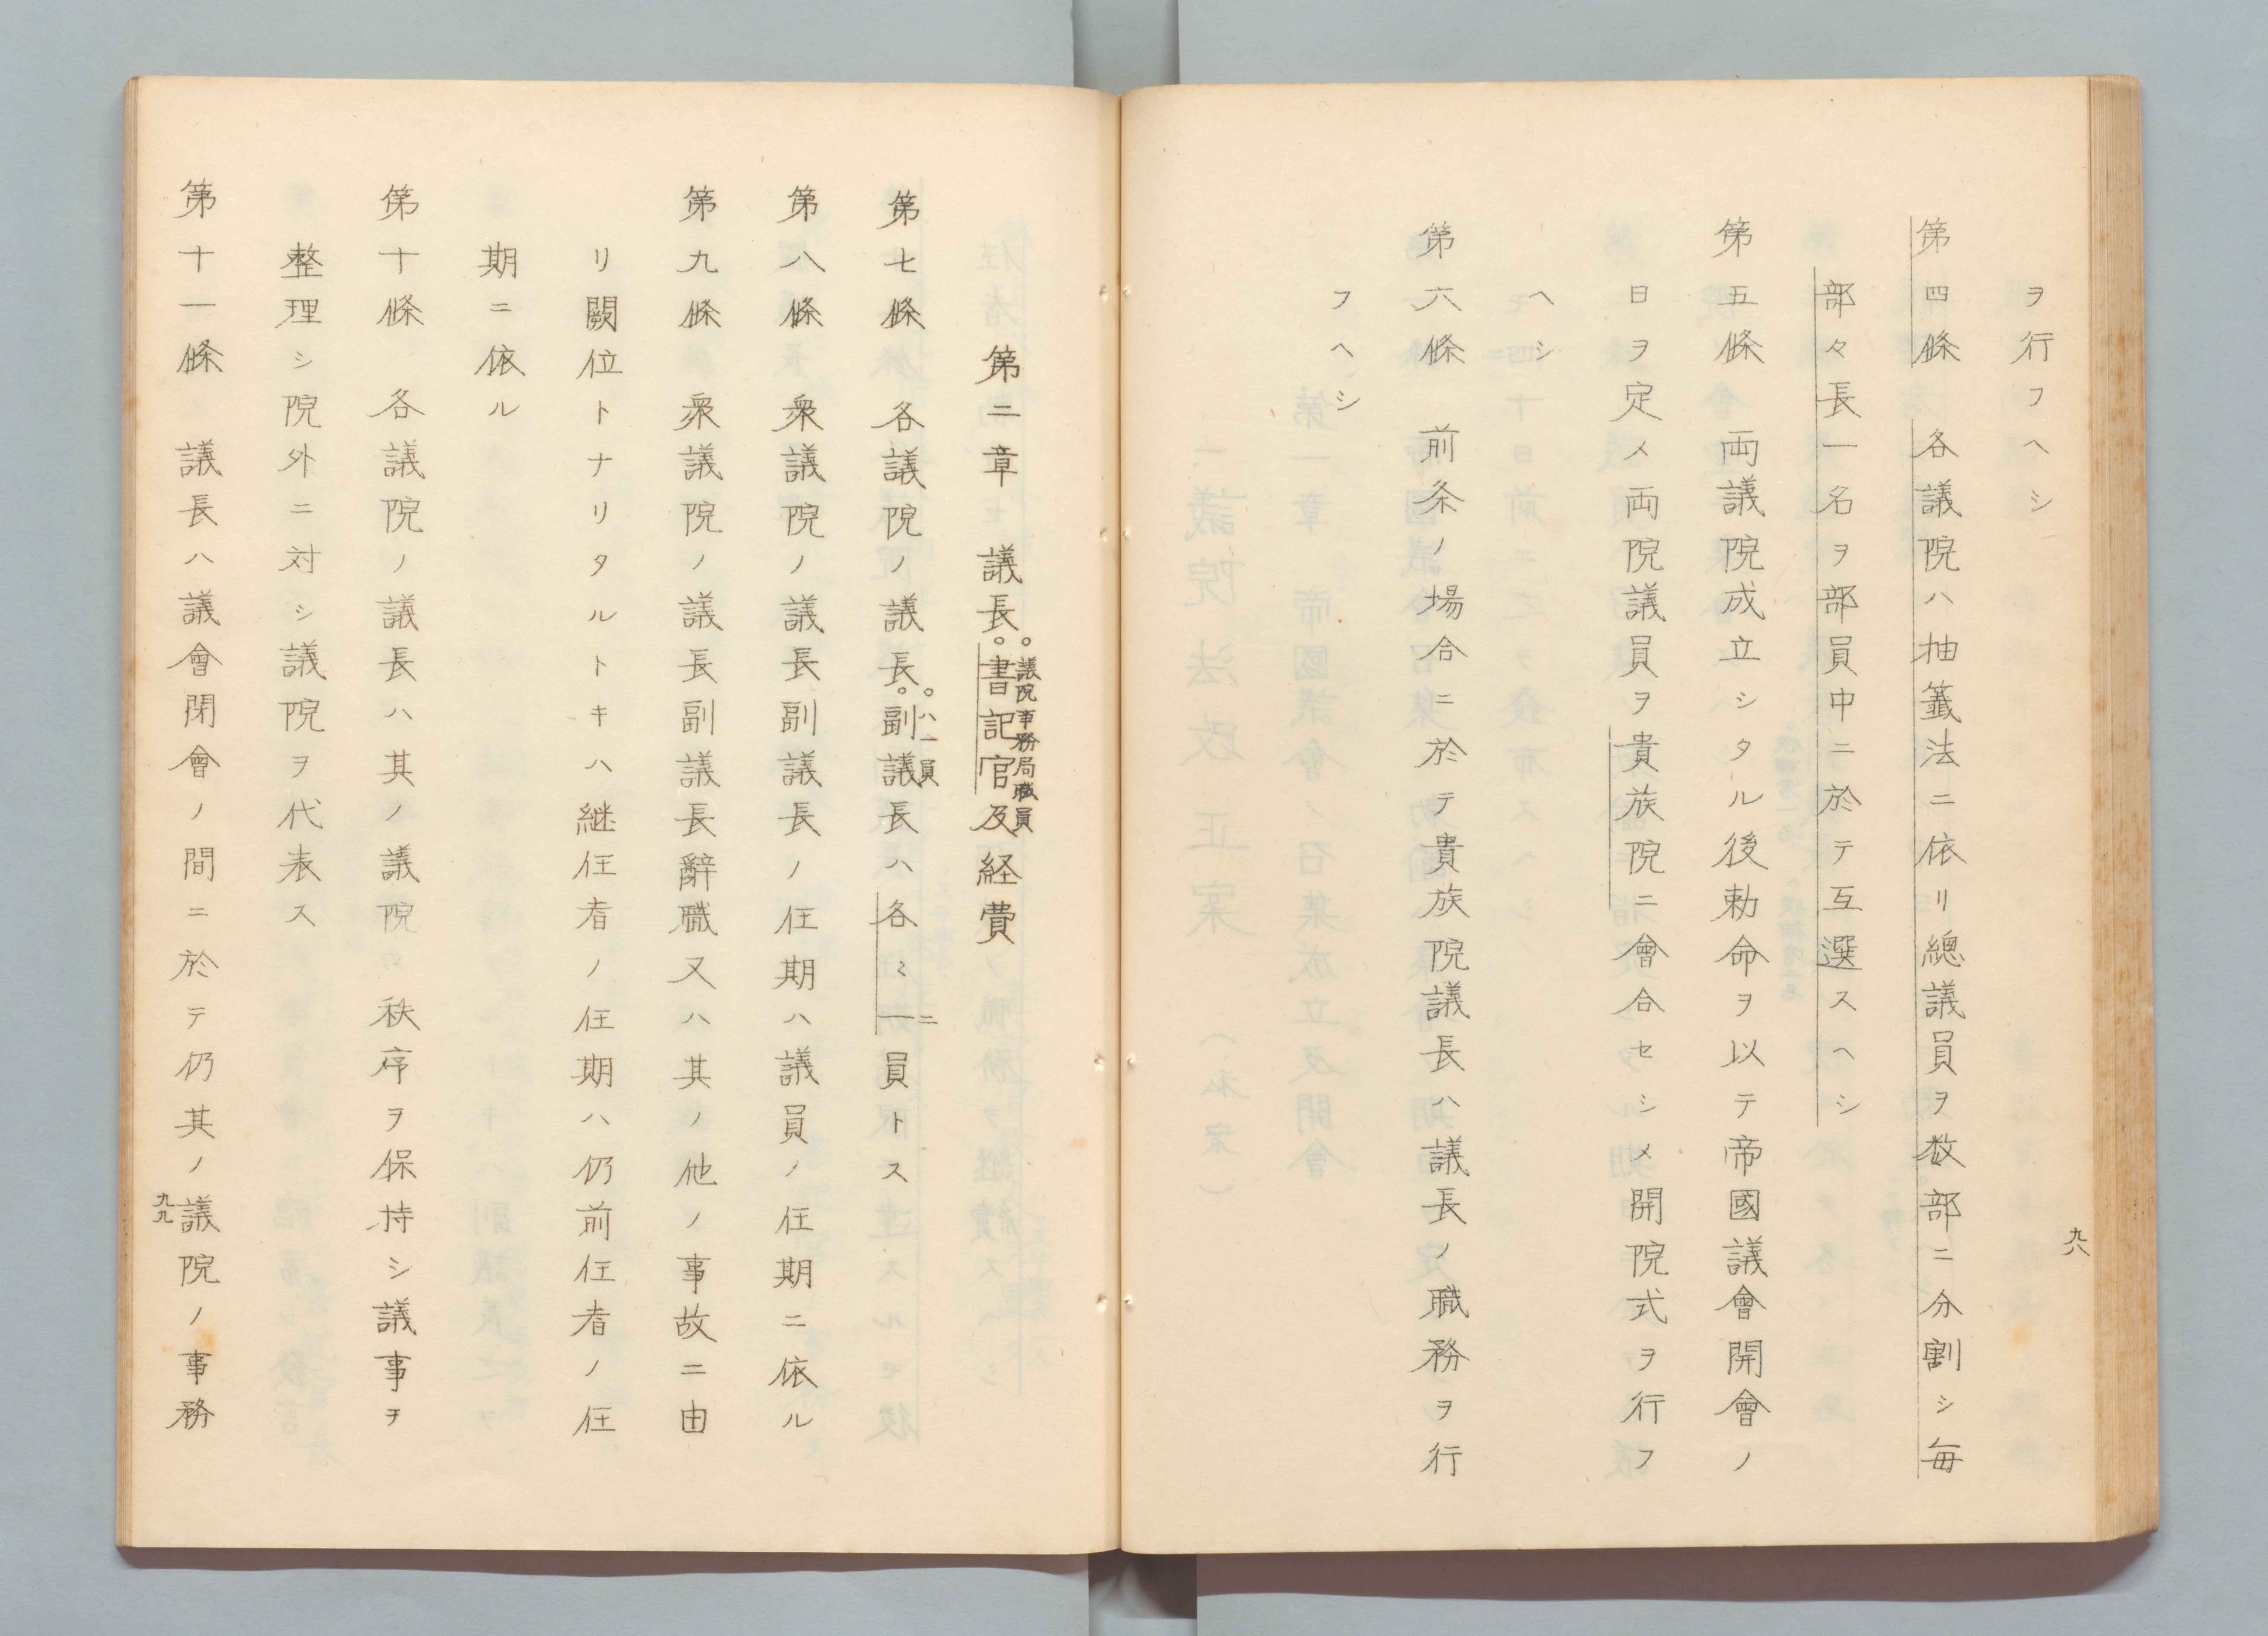 ヲ行フヘシ
第四條　各議院ハ抽籤法ニ依リ總議員ヲ数部ニ分割シ毎
部々長一名ヲ部員中ニ於テ互選スヘシ
第五條　両議院成立シタル後勅命ヲ以テ帝國議會開會ノ
日ヲ定メ両院議員ヲ貴族院ニ會合セシメ開院式ヲ行フ
ヘシ
第六條　前条ノ場合ニ於テ貴族院議長ハ議長ノ職務ヲ行
フヘシ
九八
第二章　議長。書記官及経費
。議院事務局職員
第七條　各議院ノ議長。副議長ハ各ミ一員トス
。ハ一員
ニ
第八條　衆議院ノ議長副議長ノ任期ハ議員ノ任期ニ依ル
第九條　衆議院ノ議長副議長辭職又ハ其ノ他ノ事故ニ由
リ闕位トナリタルトキハ継任者ノ任期ハ仍前任者ノ任
期ニ依ル
第十條　各議院ノ議長ハ其ノ議院ノ秩序ヲ保持シ議事ヲ
整理シ院外ニ対シ議院ヲ代表ス
第十一條　議長ハ議會閉會ノ間ニ於テ仍其ノ議院ノ事務
九九